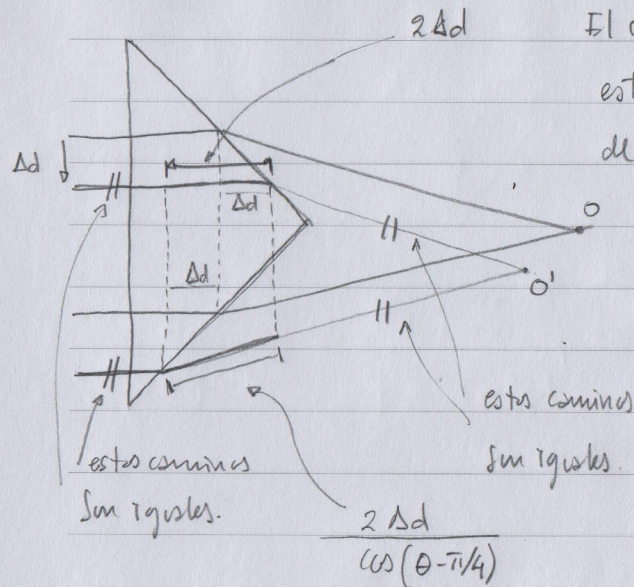 2Δd
El
est
de
Δd
Δd
Δd
O
O'
estos caminos
son iguales.
estos caminos
son iguales.
2Δd
cos(θ-π/4)